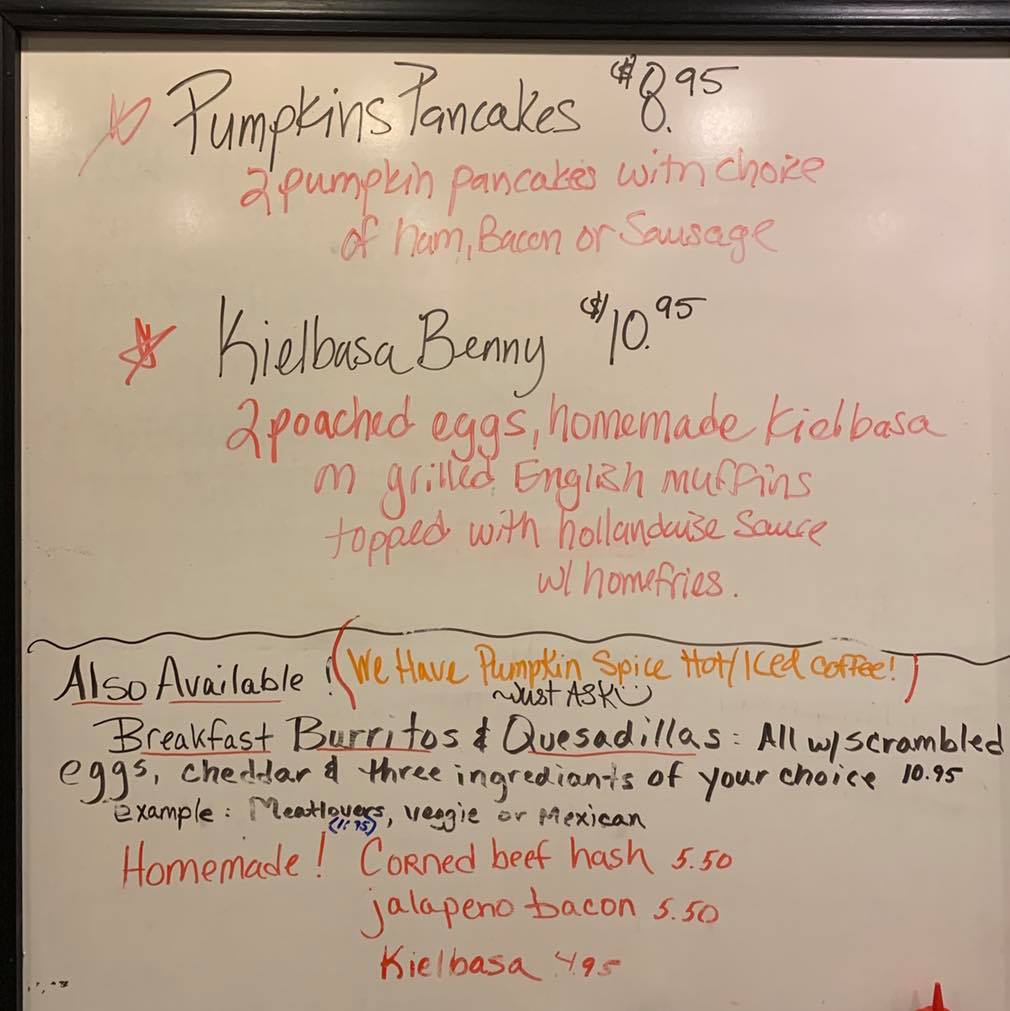 Pumpkins Pancakes $8.95
2 pumpkin pancakes with choice
of ham, Bacon or Sausage
Kielbasa Benny $10.95
2 poached eggs, homemade Kielbasa
on grilled English muffins
topped with hollandaise Sauce
w/ homefries.
Also Available! (We Have Pumpkin Spice Hot/Iced coffee!)
~Just ASK
Breakfast Burritos & Quesadillas: All w/ scrambled
eggs, cheddar & three ingrediants of your choice 10.95
example: Meatlovers, veggie or Mexican
(11.75)
Homemade! Corned beef hash 5.50
jalapeno bacon 5.50
Kielbasa 4.95